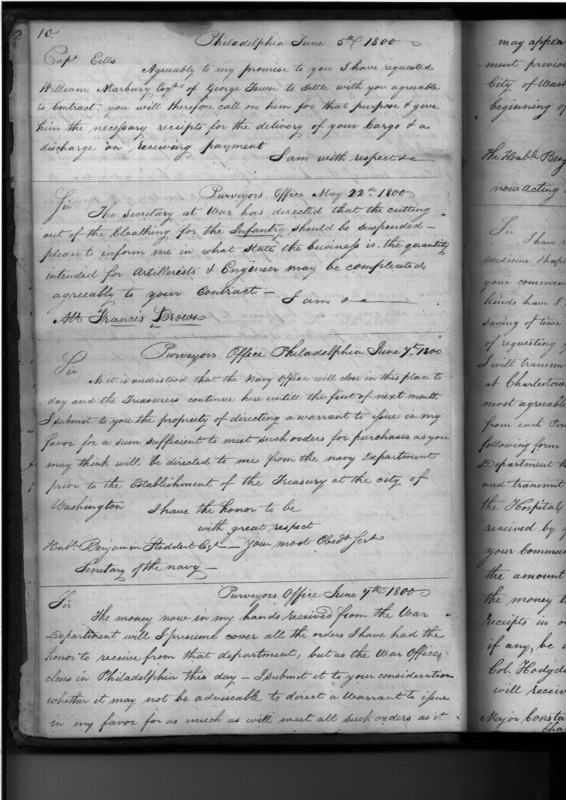 10.
Philadelphia June 5th 1800
Capt Eells
Agreably to my promise to you I have requested
William Marbury Esqr of George Town to settle with you agreable
to Contract. you will therefore call on him for that purpose & give
him the necessary receipts for the delivery of your Cargo & a
discharge on receiving payment
I am with respect &c
Purveyors Office May 22nd 1800
Sir
The Secretary at War has directed that the cutting
out of the Cloathing for the Infantry should be suspended —
please to inform me in what state the business is. the quantity
intended for Artillerists & Engineer may be compleated
agreably to your Contract —
I am &c
Mr Francis Brown
Purveyors Office Philadelphia June 7th 1800
Sir
As it is understood that the Navy Office will close in this place to
day and the Treasurers continue here untill the first of next month
I submit to you the propriety of directing a warrant to issue in my
favor for a sum sufficient to meet such orders for purchases as you
may think will be directed to me from the navy Department
prior to the Establishment of the Treasury at the city of
Washington
I have the honor to be
with great respect
Honbl Benjamin Stoddert Esqr — Your most Obedt Servt
Secretary of the navy —
Purveyors Office June 7th 1800
Sir
The money now in my hands received from the War
Department will I presume cover all the orders I have had the
honor to receive from that department, but as the War Office
closes in Philadelphia this day — I submit it to your consideration
whether it may not be adviseable to direct a Warrant to issue
in my favor for as much as will meet all such orders as it
may appear
most previou
City of Wash
beginning of
the Honble Benj
now acting
Sir
I have r
medicine Shap
your commun
kinds have I
saving of time
of requesting y
I will transmi
at Charlestown
most agreeable
from each Per
following form
Department th
and transmit
the Hospital,
received by y
your Comman
the amount
the money t
Receipts in o
if any, be i
Col. Hodgdo
will receiv
Major Consta